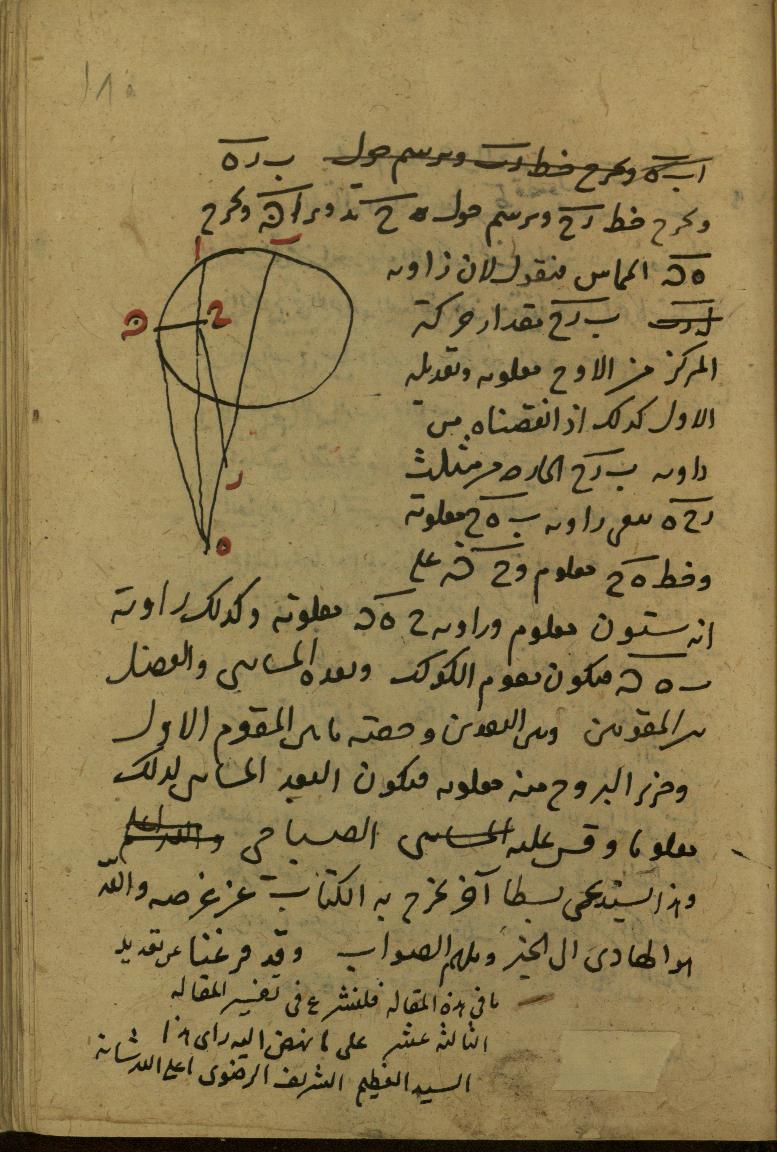 ا ب ه ونخرج خط رب ونرسم حول ب ر ه
ونخرج خط رح ونرسم حول ح تدوير ا ك ونخرج
ه ك المماس فنقول لان زاوية
ب رح مقدار حركة
المركز من الاوج معلومة وتعديله
الاول كذلك اذا نقصناه من
زاوية ب رح الخارجة من مثلث
رح ه تبقى زاوية ب ه ح معلومة
وخط ه ح معلوم وح ك على
انه ستون معلوم وزاوية ح ه ك معلومة وكذلك زاوية
ب ه ك فيكون مقوم الكوكب وبعده المسايى والفضل
بين المقومين وبين البعدين وحصته ما بين المقوم الاول
وجزء البروج منه معلومة فيكون البعد المسايى لذلك
معلوما وقس عليه المسايى الصباحي والله اعلم
وهذا يستدعى بسطا آخر يخرج به الكتاب عن غرضه والله
الهادى الى الخير وملهم الصواب وقد فرغنا عن تقديد
ما فى هذه المقاله فلنشرع فى تفسير المقاله
الثالثه عشر على ما نهض اليه راى هذا
السيد العظيم الشريف الرضوى اعلى الله شانه
ا
ب
ك
ح
ر
ه